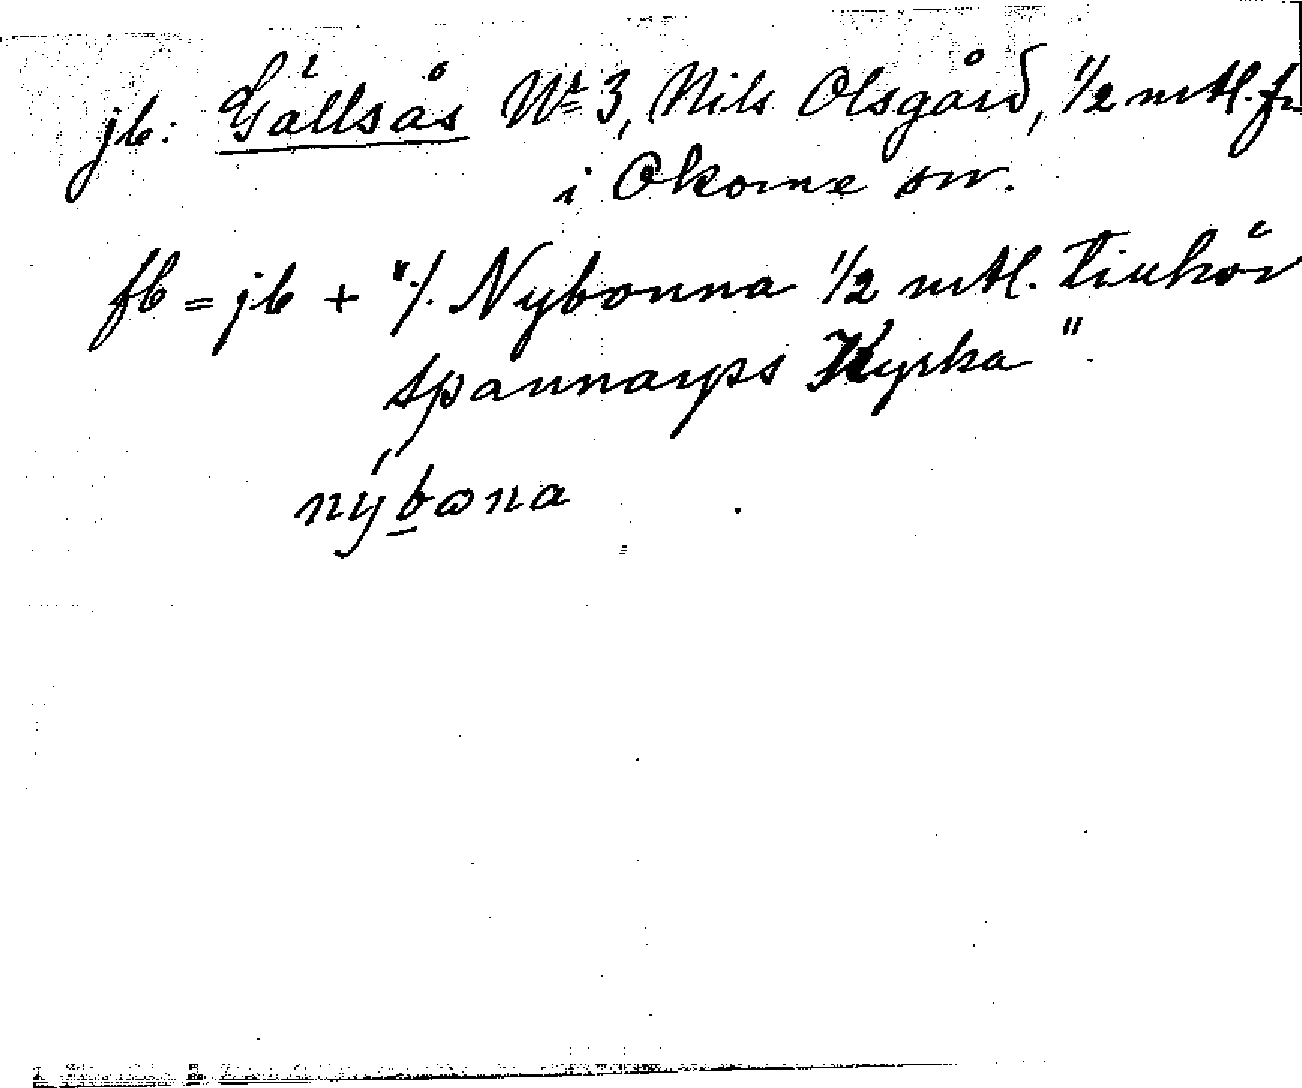 jb: Gällsås Nr 3, Nils Olsgård, 1/2 mtl. fr
i Okome sn.
fb = jb + "/. Nybonna 1/2 mtl. tillhör
Spannarps Kyrka".
nýbona